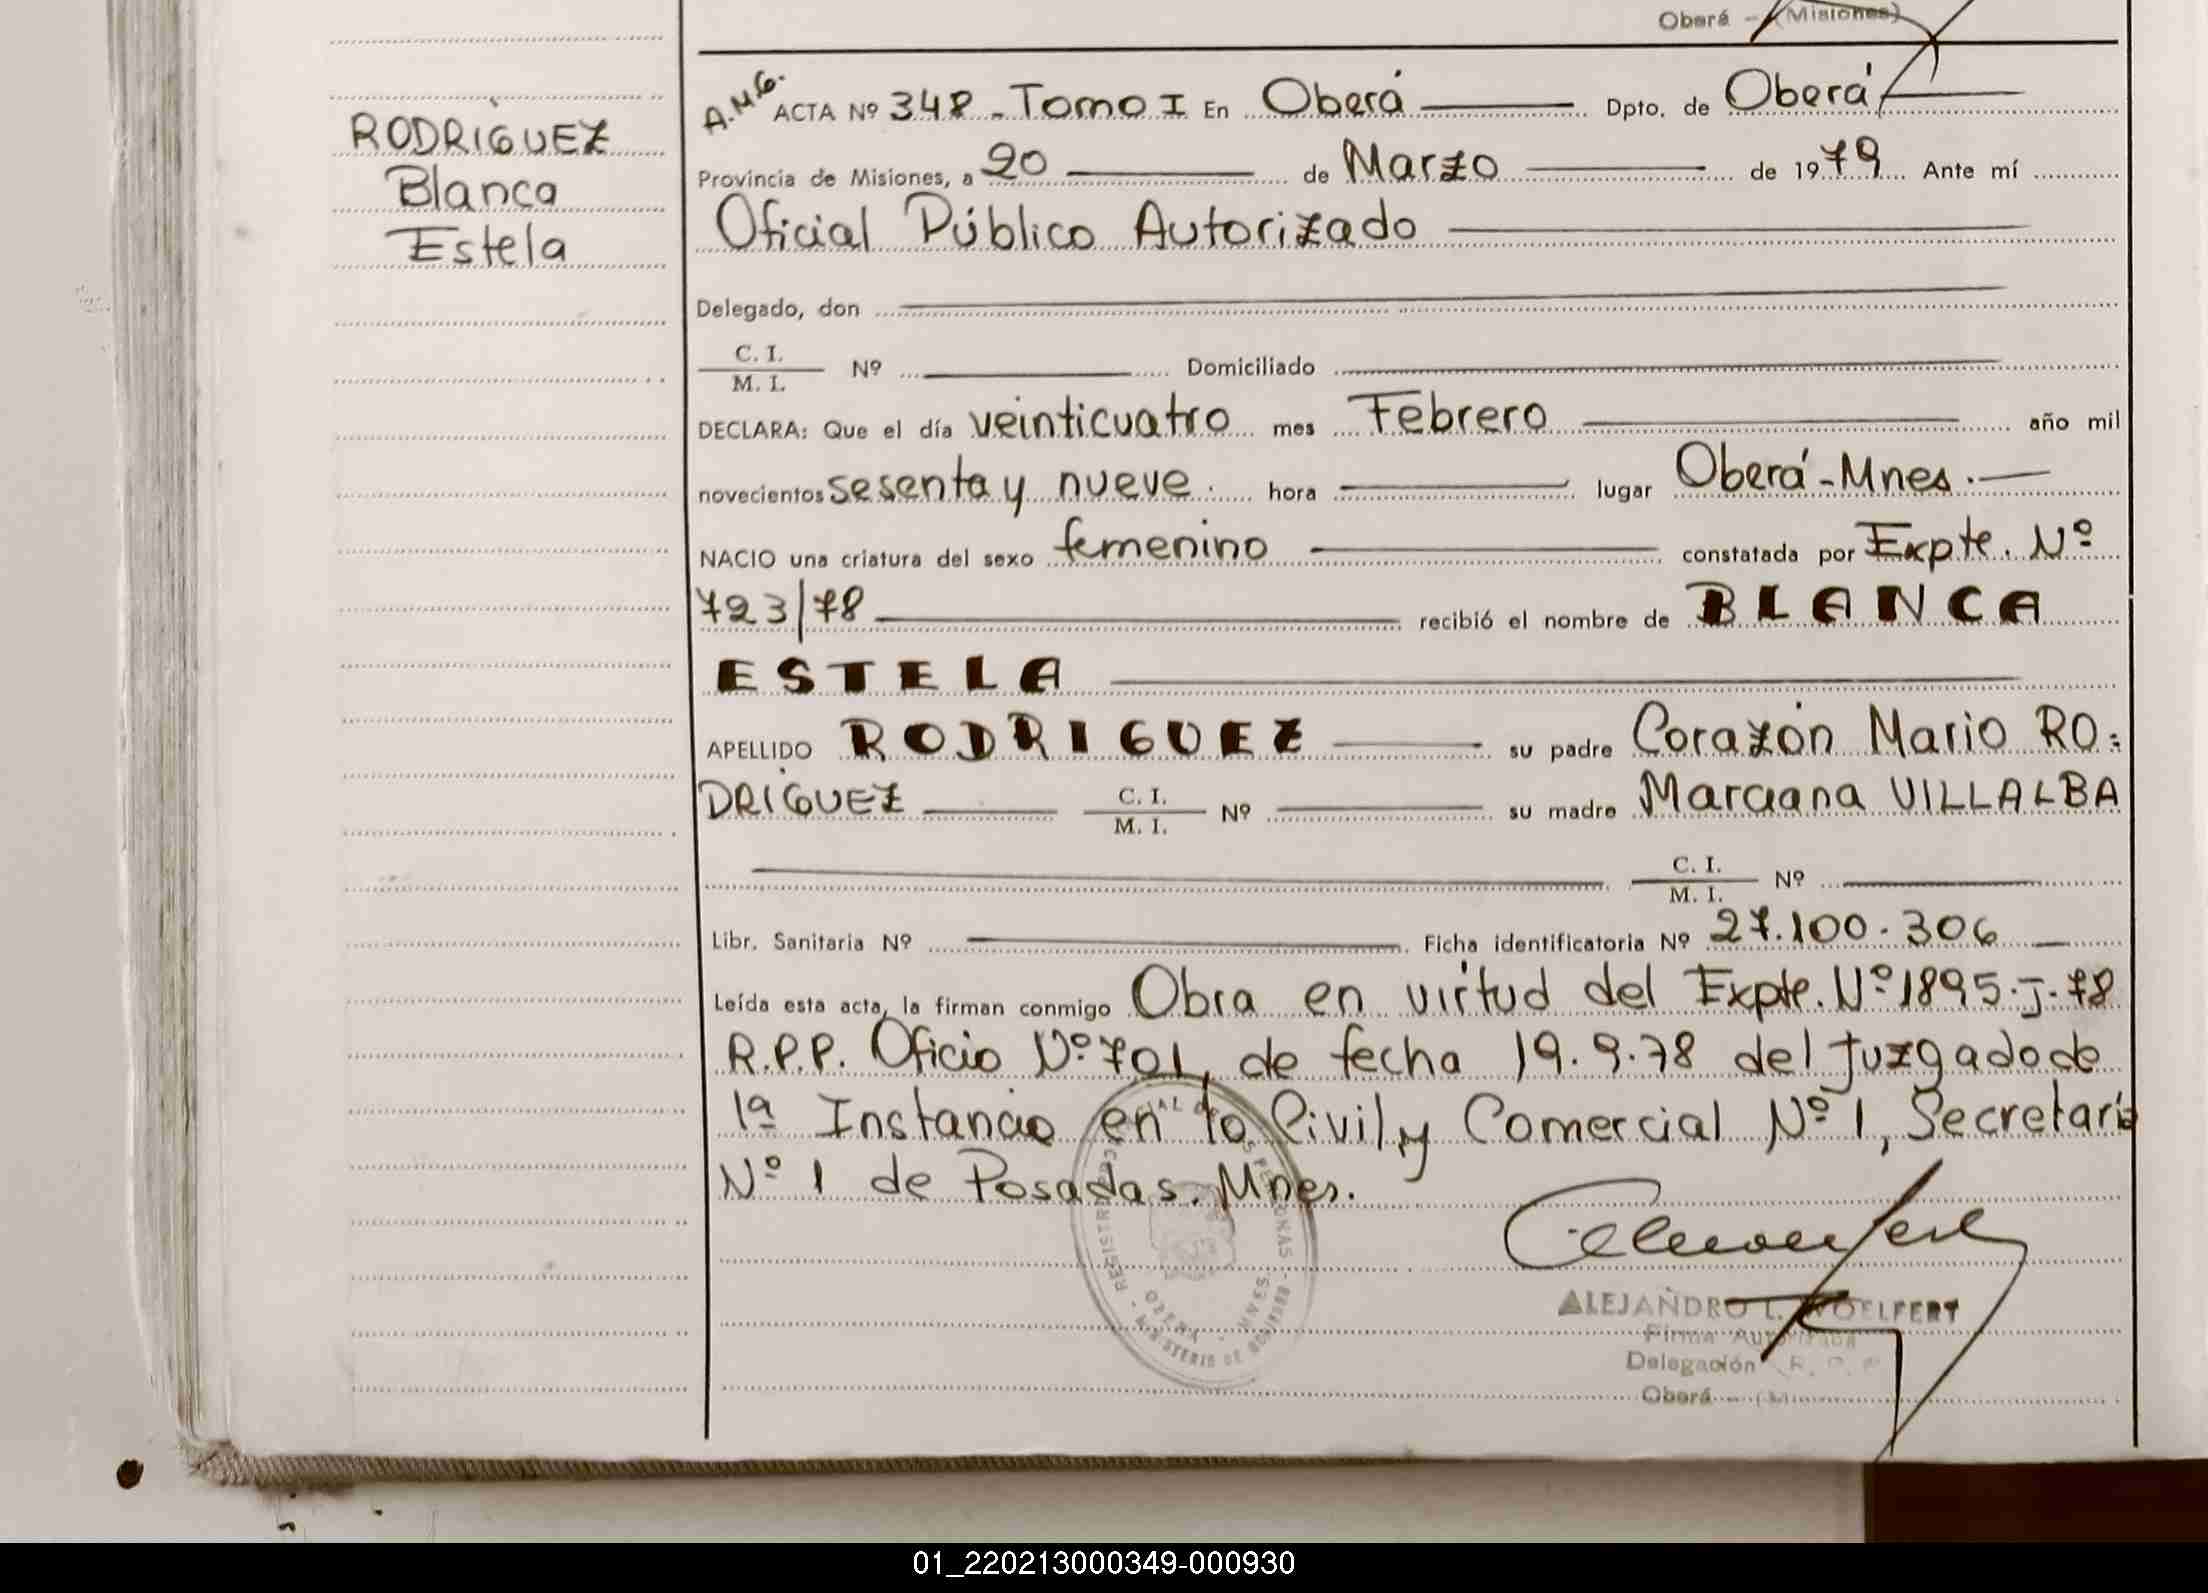 Oberá - (Misiones)
RODRIGUEZ
Blanca
Estela
A.M.G. ACTA Nº 348 - Tomo I En Oberá Dpto. de Oberá
Provincia de Misiones, a 20 de Marzo de 1979 Ante mí
Oficial Público Autorizado
Delegado, don
C. I.
M. I. Nº Domiciliado
DECLARA: Que el día veinticuatro mes Febrero año mil
novecientos sesenta y nueve. hora lugar Oberá-Mnes.
NACIO una criatura del sexo femenino constatada por Expte. Nº
723/78 recibió el nombre de BLANCA
ESTELA
APELLIDO RODRIGUEZ su padre Corazón Mario RO=
DRIGUEZ C. I. M. I. Nº su madre Marciana VILLALBA
C. I. M. I. Nº
Libr. Sanitaria Nº Ficha identificatoria Nº 27.100.306
Leída esta acta, la firman conmigo Obra en virtud del Expte. Nº 1895-J-78
R.P.P. Oficio Nº 701, de fecha 19.9.78 del Juzgado de
1ª Instancia en lo Civil y Comercial Nº 1, Secretaría
Nº 1 de Posadas. Mnes.
ALEJANDRO L. WOELFERT
Firma Autorizada
Delegación R. P. P.
Oberá
01_220213000349-000930